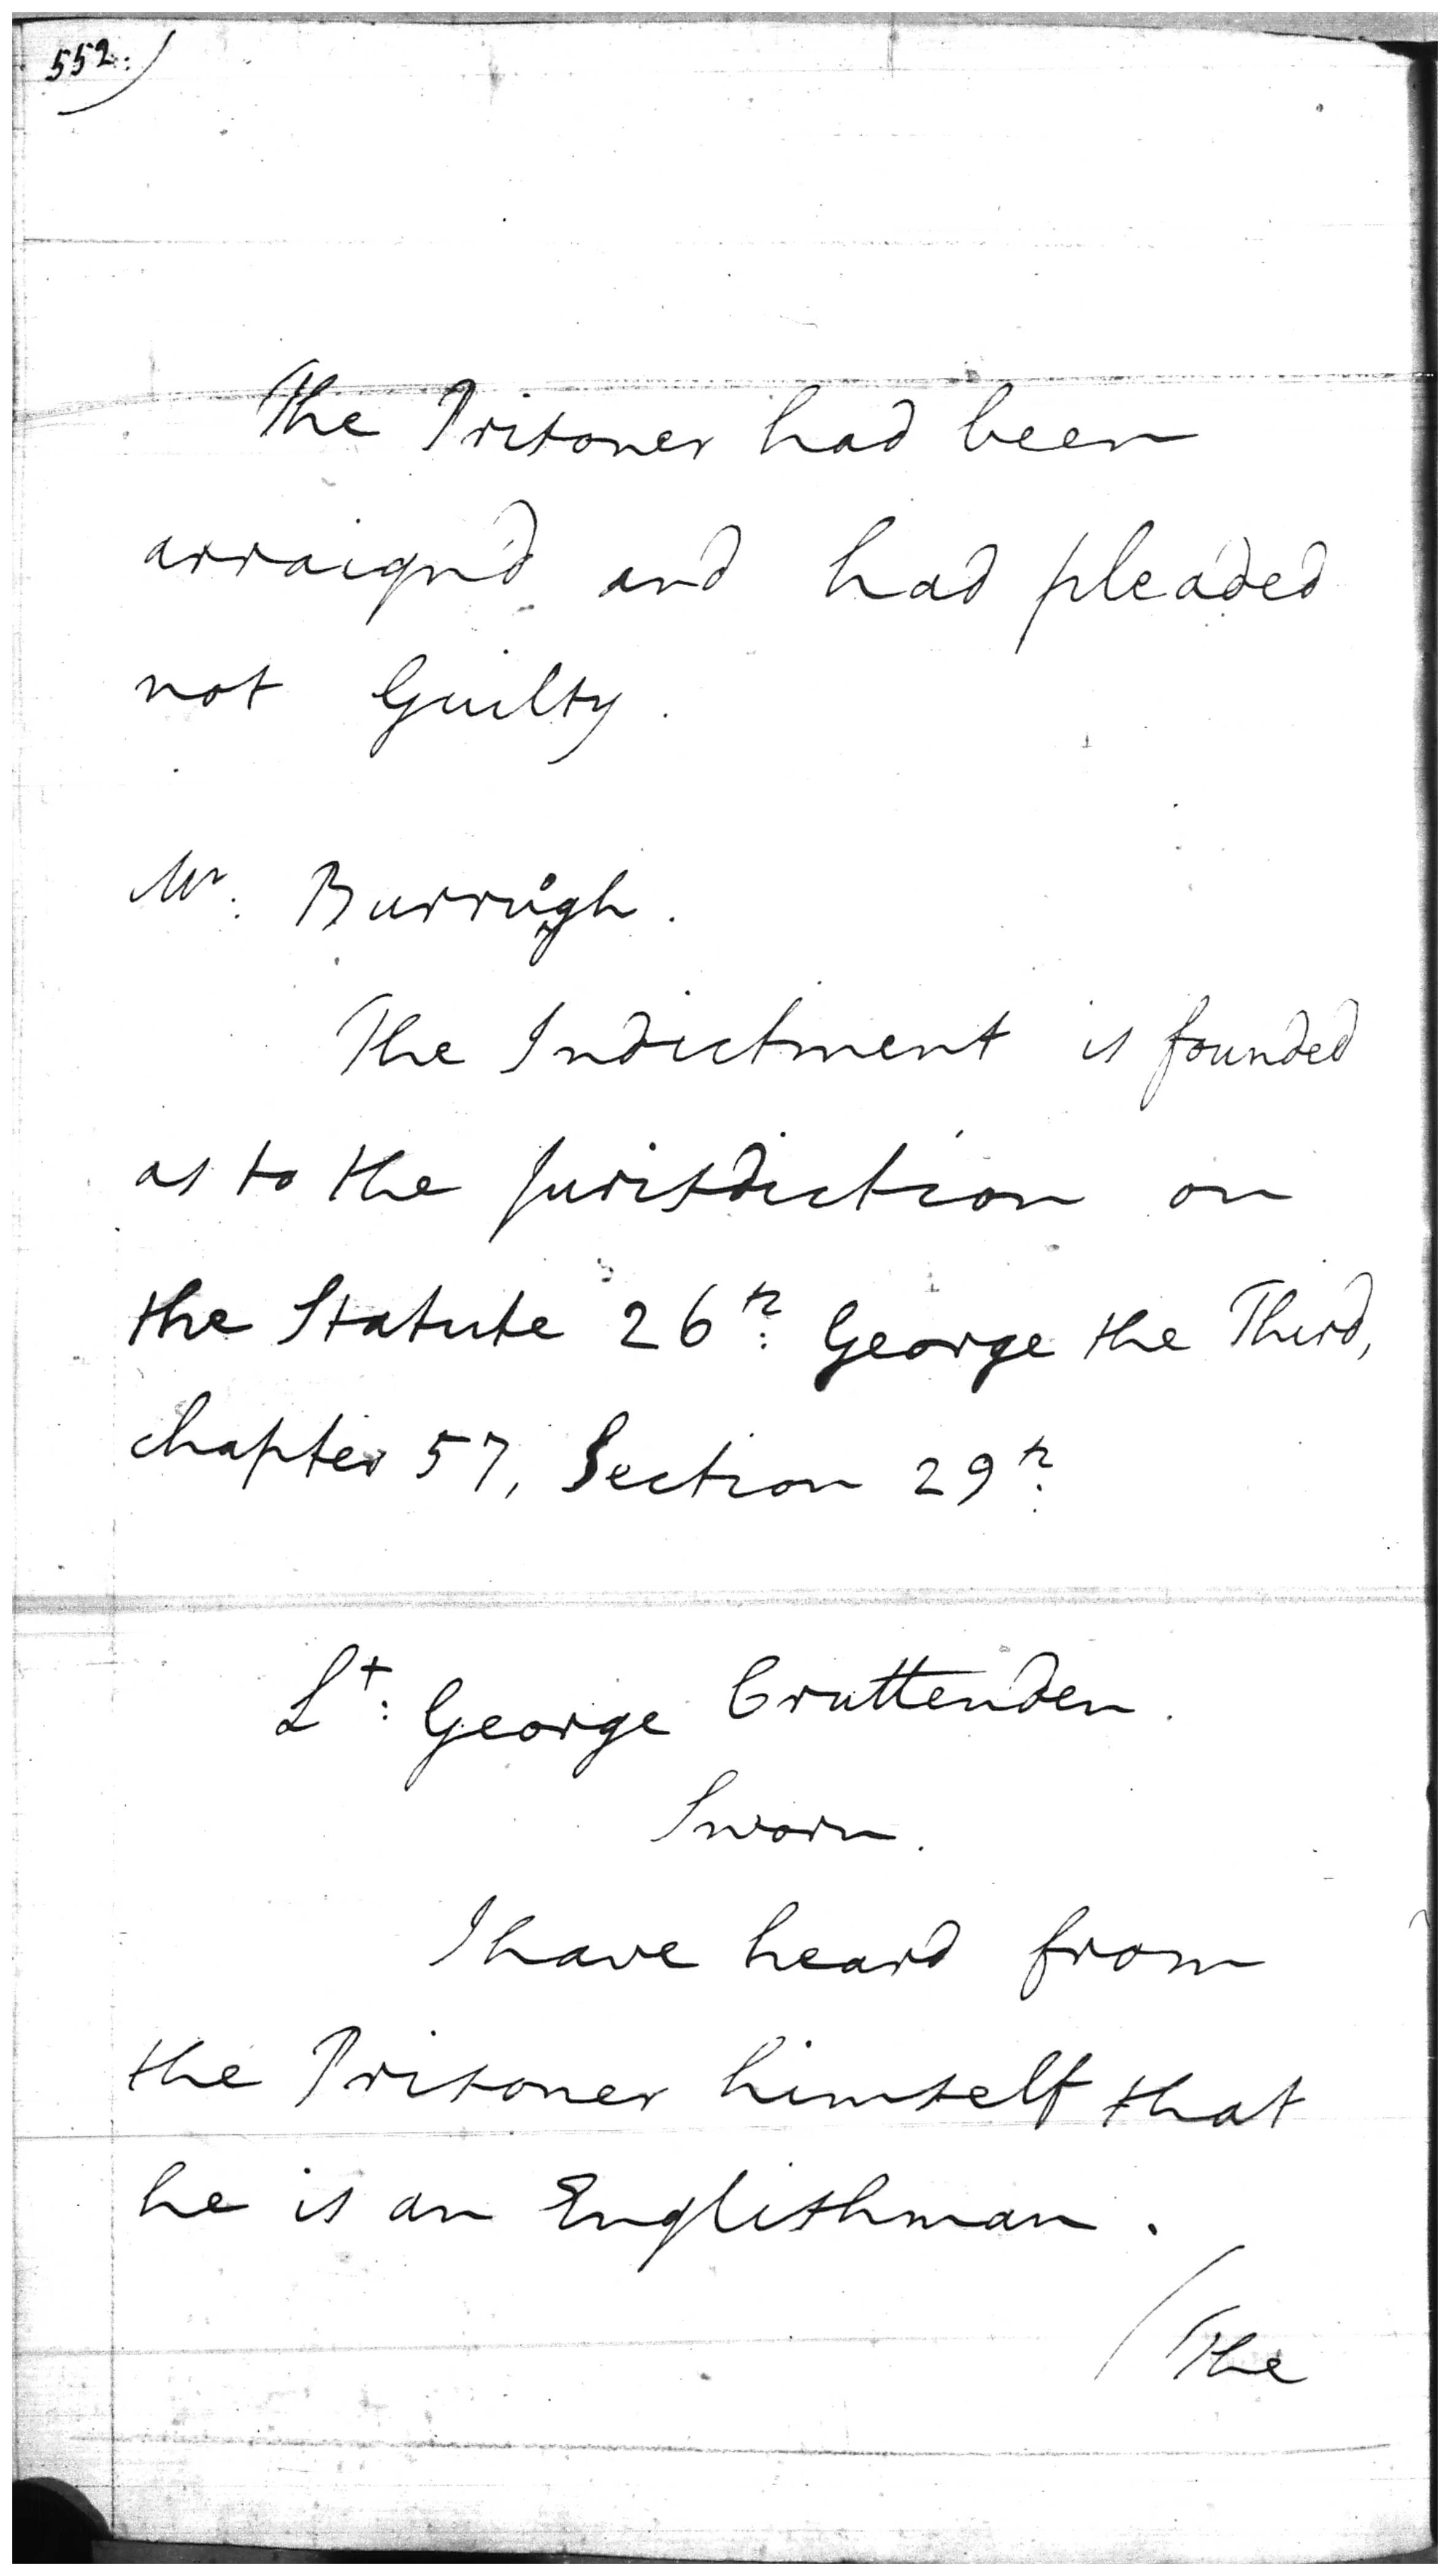 552:)
The Prisoner had been
arraign'd and had pleaded
not Guilty.
Mr. Burrogh.
The Indictment is founded
as to the Jurisdiction on
the Statute 26th: George the Third,
chapter 57, Section 29th:
Lt: George Cruttenden.
Sworn.
I have heard from
the Prisoner himself that
he is an Englishman.
(The